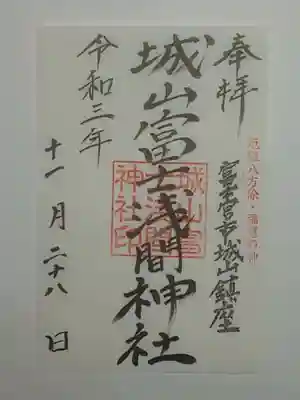 奉拝
富士宮市城山鎮座
城山富士浅間神社
城山富
士浅間
神社印
令和三年
十一月二十八日